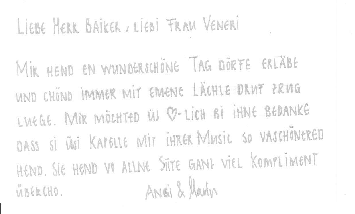 LIEBE HERR BAIKER, LIEBI FRAU VENERI
MIR HEND EN WUNDERSCHÖNE TAG DÖRFE ERLÄBE
UND CHÖND IMMER MIT EMENE LÄCHLE DRUF ZRUG
LUEGE. MIR MÖCHTED ÜS ♡-LICH BI IHNE BEDANKE
DASS SI ÜSI KAPELLE MIT IHRER MUSIC SO VASCHÖNERED
HEND. SIE HEND VO ALLNE SIITE GANZ VIEL KOMPLIMENT
ÜBERCHO.